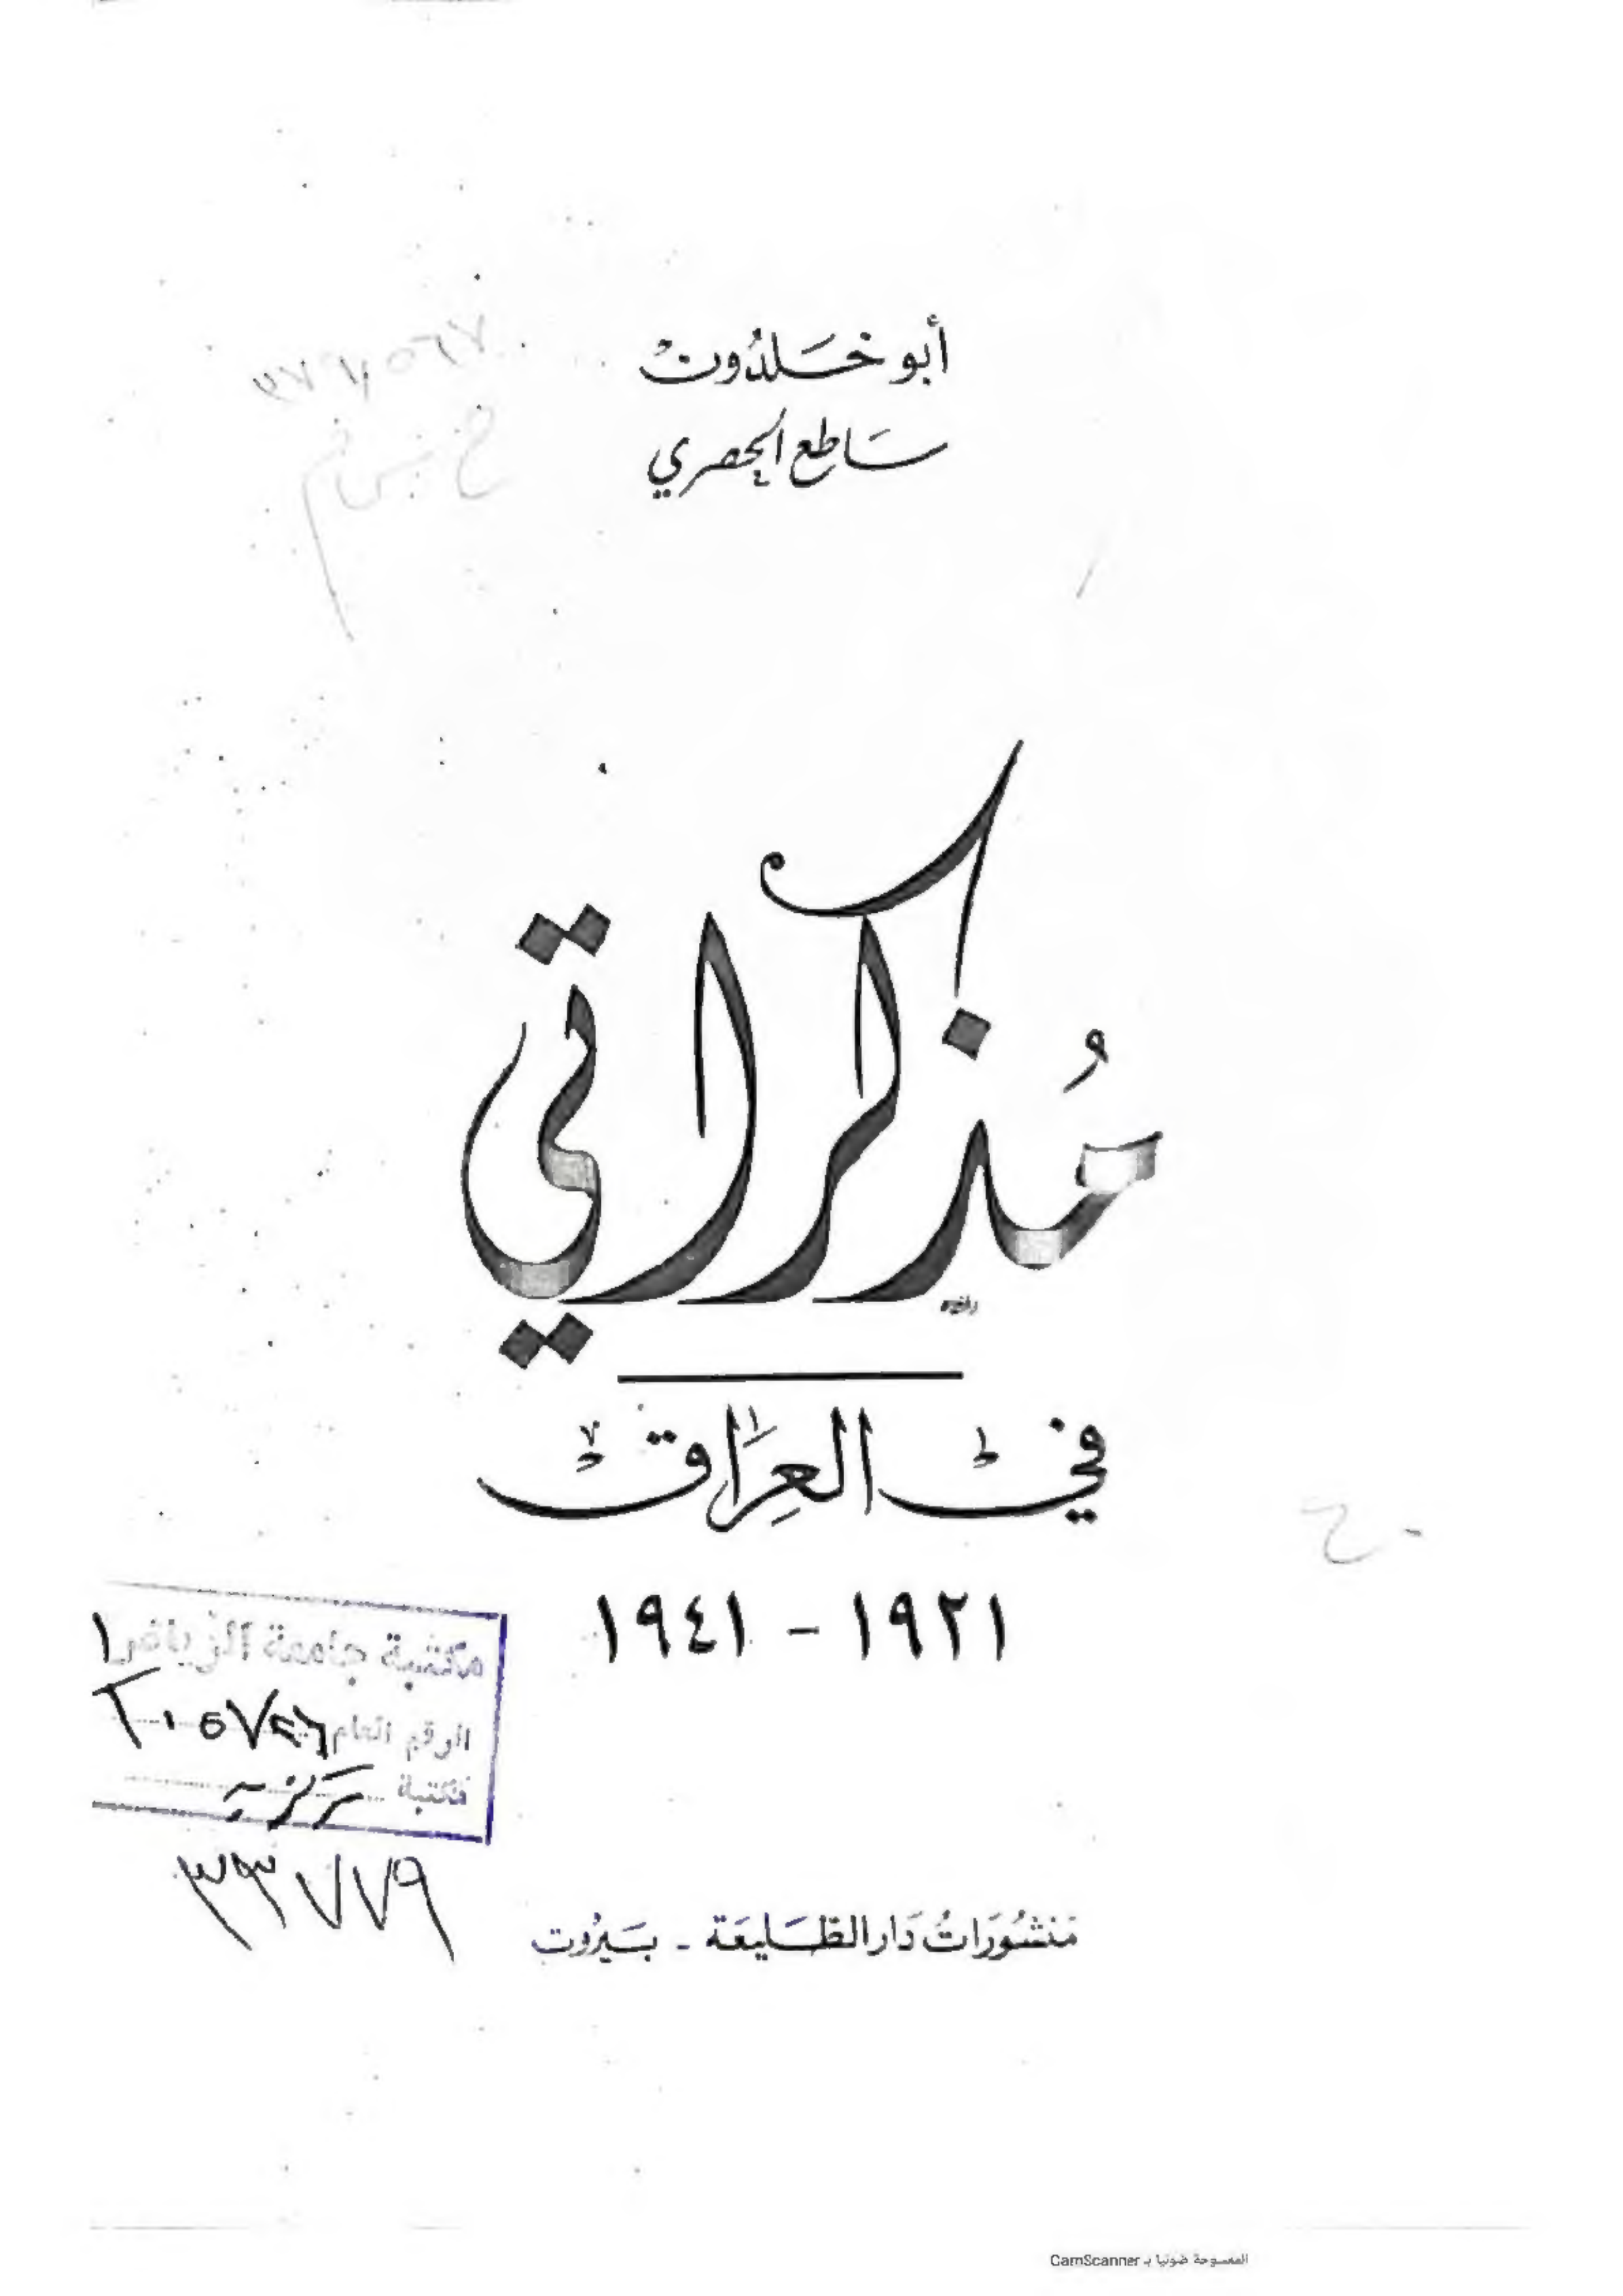 أبو خَلدُون
سَاطع الحصري
مُذكراتي
في العِرَاق
١٩٢١ - ١٩٤١
مكتبة جامعة
الرقم العام
مكتبة مركزية
٣٣٧٧٩
مَنشُورَاتُ دَار الطَّليعَة - بَيرُوت
الممسوحة ضوئيا بـ CamScanner